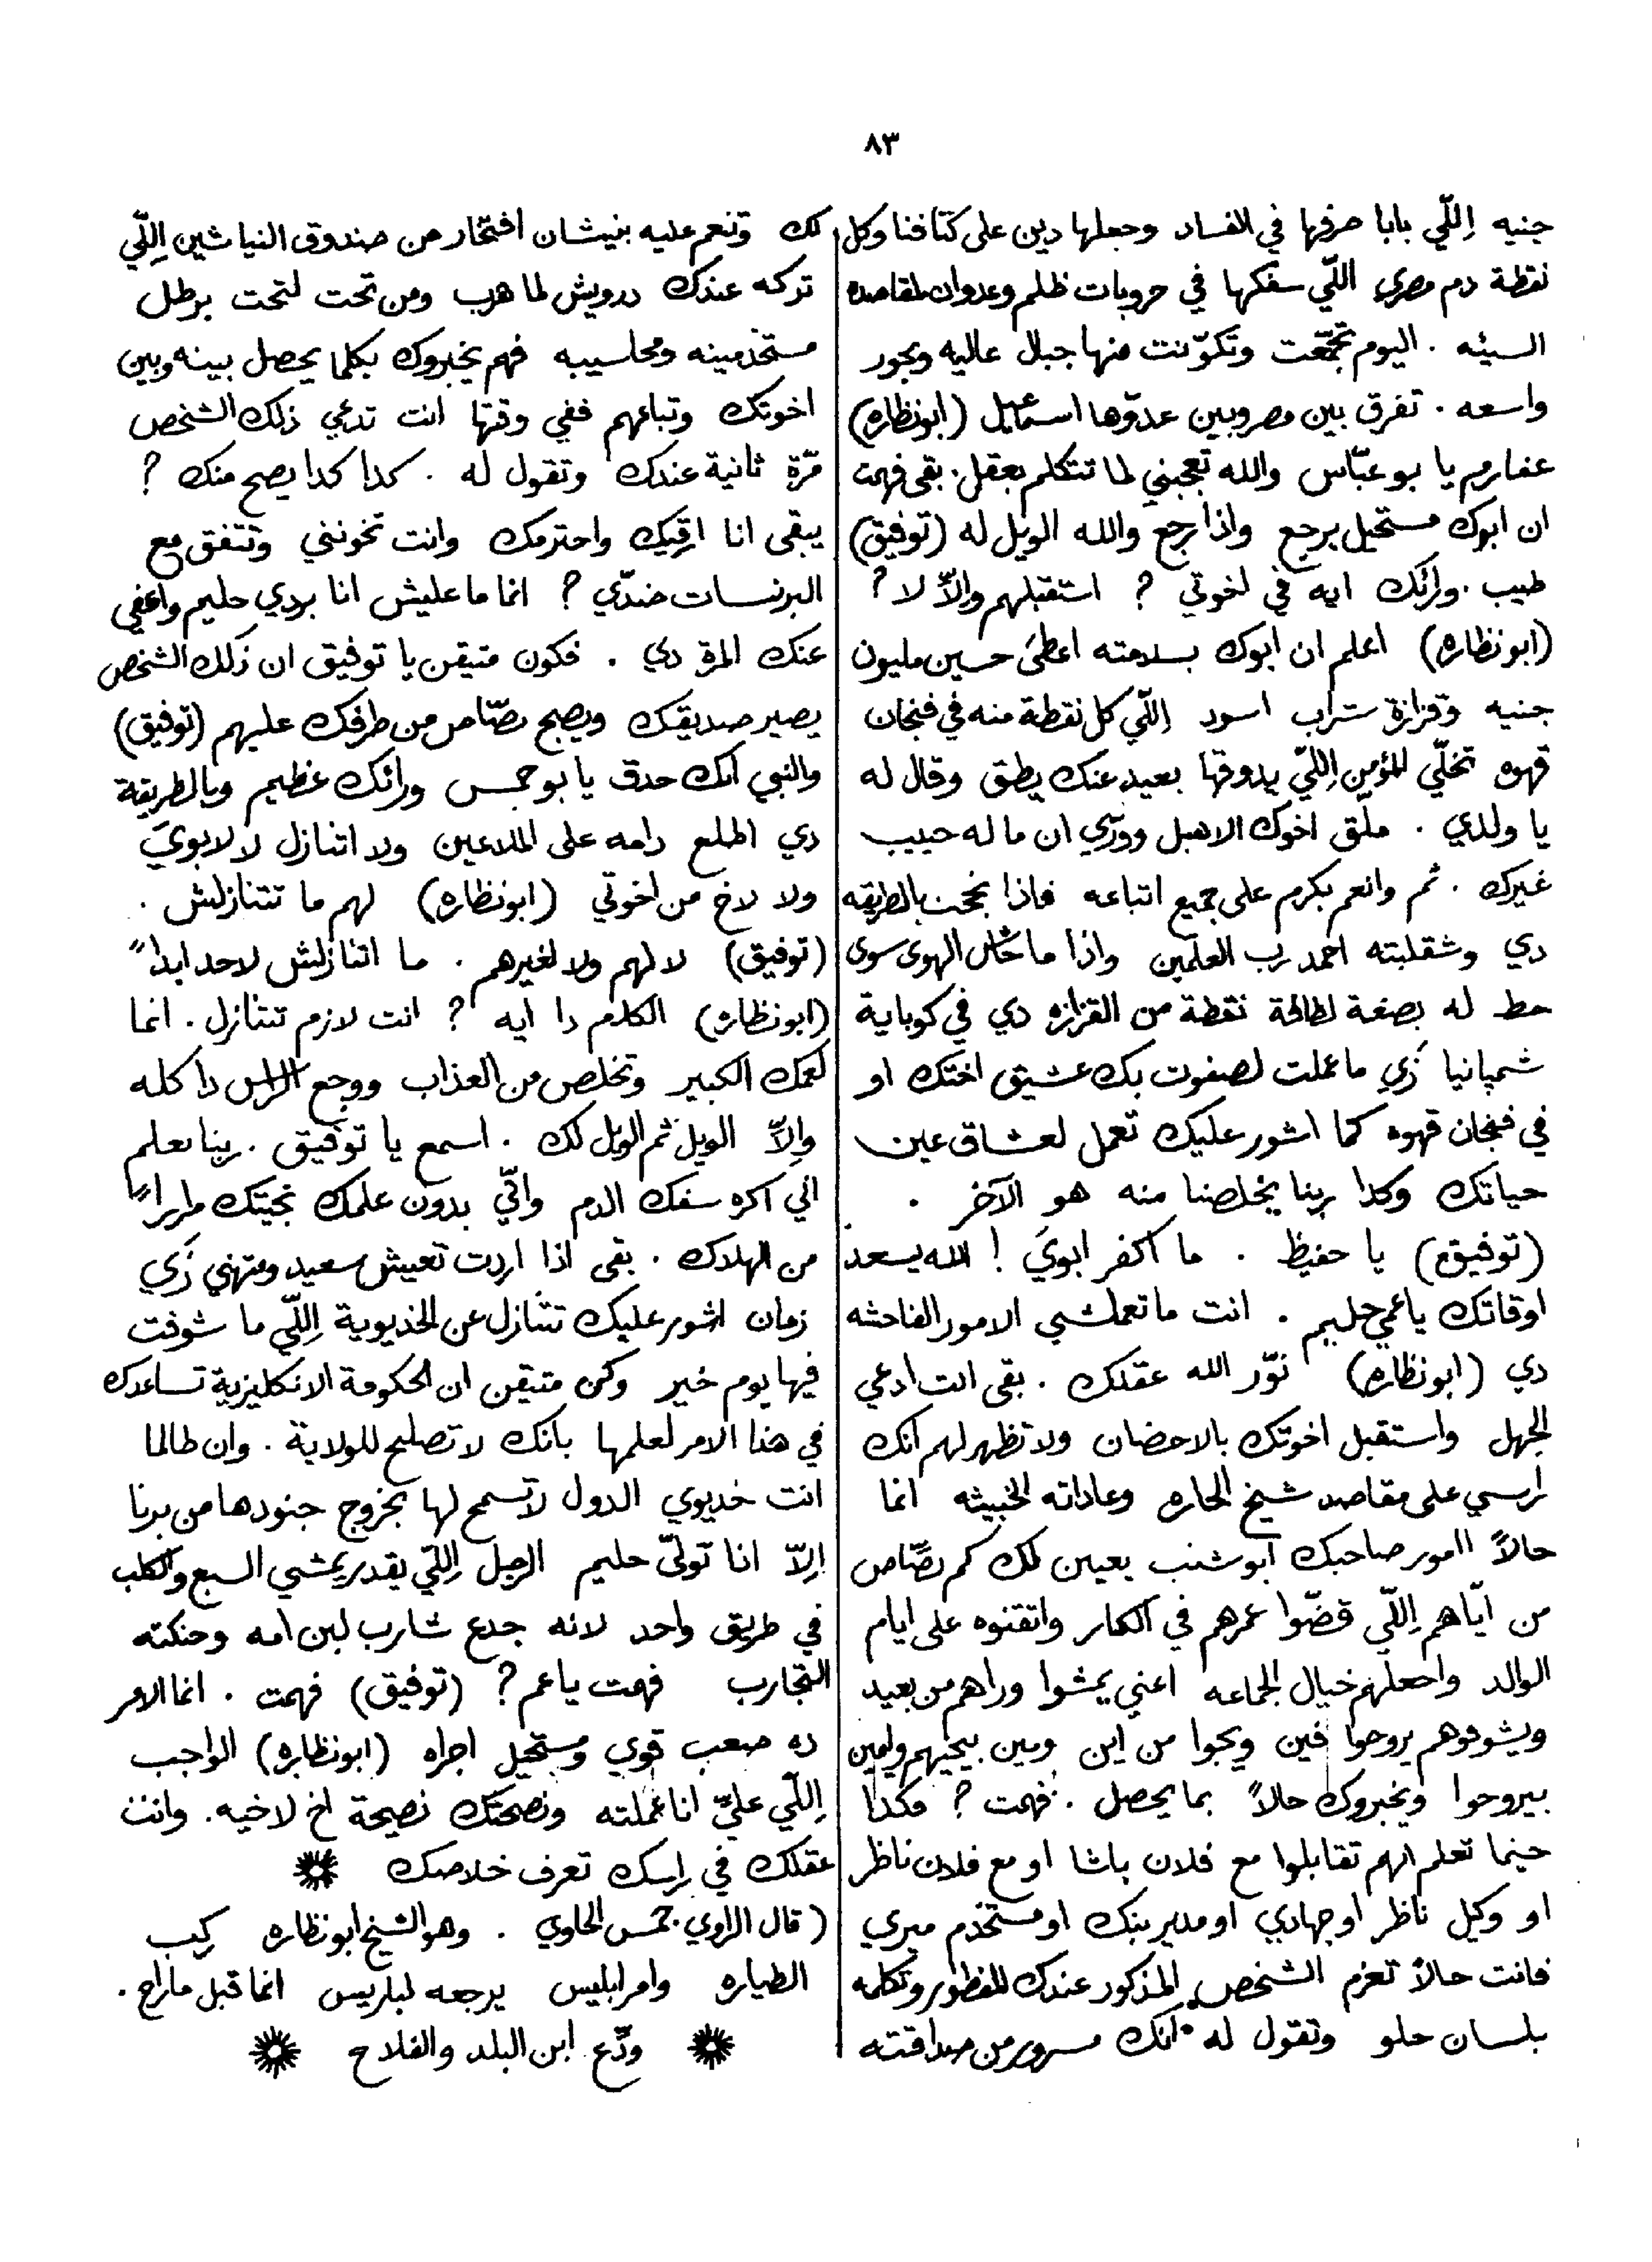 ٨٣
جنيه اِللّي بابا صرفها في الفساد وجعلها دين على كتافنا وكل
نقطة دم مصري اللّي سفكها في حروبات ظلم وعدوان لمقاصده
السيئه . اليوم تجمّعت وتكوّنت منها جبال عاليه وبحور
واسعه . تفرق بين مصر وبين عدوّها اسماعيل (ابونظاره)
عفارم يا بو عبّاس والله تعجبني لما تتكلم بعقل . بقى فهمت
ان ابوك مستحيل يرجع واذا رجع والله الويل له (توفيق)
طيب . ورائك ايه في اخوتي ? استقبلهم واِلاّ لا ?
(ابونظاره) اعلم ان ابوك بسلامته اعطى حسين مليون
جنيه وقزازة شراب اسود اِللّي كل نقطة منه في فنجان
قهوه تخلّي المؤمن اِللّي يدوقها بعيد عنك يطق وقال له
يا ولدي . ملّق اخوك الاهبل وورّي ان ما له حبيب
غيرك . ثم وانعم بكرم على جميع اتباعه فاذا نجحت بالطريقه
دي وشقلبته احمد رب العلمين واذا ما خاش الهوى سوى
حط له بصفة لطافة نقطة من القزازه دي في كوباية
شمپانيا زَي ما عملت لصفوت بك عشيق اختك او
في فنجان قهوه كما اشور عليك تعمل لعشاق عين
حياتك وكدا ربنا يخلصنا منه هو الآخر .
(توفيق) يا حفيظ . ما اكفر ابويَ ! الله يسعد
اوقاتك يا عمي حليم . انت ما تعملشي الامور الفاحشه
دي (ابونظاره) نوّر الله عقلك . بقى انت ادعي
الجهل واستقبل اخوتك بالاحضان ولا تظهر لهم انك
راسي على مقاصد شيخ الحاره وعاداته الخبيثه انما
حالاً اامور صاحبك ابو شنب يعين لك كم بصّاص
من ايّاهم اِللّي قضّوا عمرهم في الكار واتقنوه على ايام
الوالد واجعلهم خيال الجماعه اعني يمشوا وراهم من بعيد
ويشوفوهم يروحوا فين ويجوا من اين ومين بيجيهم ولمين
بيروحوا ويخبروك حالاً بما يحصل . فهمت ? هكذا
حينما تعلم انهم تقابلوا مع فلان باشا او مع فلان ناظر
او وكيل ناظر او جهادي او مدير بنك او مستخدم ميري
فانت حالاً تعزم الشخص المذكور عندك للفطور وتكلمه
بلسان حلو وتقول له انك مسرور من صداقته
لك وتنعم عليه بنيشان افتخار من صندوق النياشين اِللّي
تركه عندك درويش لما هرب ومن تحت لتحت برطل
مستخدمينه ومحاسيبه فهم يخبروك بكلما يحصل بينه وبين
اخوتك وتباعهم ففي وقتها انت تدعي ذلك الشخص
مّرة ثانية عندك وتقول له . كدا كدا يصح منك ?
يبقى انا ارقيك واحترمك وانت تخونني وتتفق مع
البرنسات ضدّي ? انما ما عليش انا بردي حليم واعفي
عنك المرة دي . فكون متيقن يا توفيق ان ذلك الشخص
يصير صديقك ويصبح بصّاص من طرفك عليهم (توفيق)
والنبي انك حدق يا بو حمس ورائك عظيم وبالطريقة
دي اطلع رامه على الملاعين ولا اتنازل لا لابويَ
ولا لاخ من اخوتي (ابونظاره) لهم ما تتنازلش .
(توفيق) لا لهم ولا لغيرهم . ما اتنازلش لاحد ابداً
(ابونظاره) الكلام دا ايه ? انت لازم تتنازل . انما
لعمك الكبير وتخلص من العذاب ووجع الراس دا كله
واِلاّ الويل ثم الويل لك . اسمع يا توفيق . ربنا يعلم
اني اكره سفك الدم واني بدون علمك نجيتك مراراً
من الهلاك . بقى اذا اردت تعيش سعيد ومتهني زَي
زمان اشور عليك تتنازل عن الخديوية اِللّي ما شوفت
فيها يوم خير وكن متيقن ان الحكومة الانكليزية تساعدك
في هذا الامر لعلمها بانك لا تصلح للولاية . وان طالما
انت خديوي الدول لا تسمح لها بخروج جنودها من برنا
اِلاّ اذا تولّى حليم الرجل اِللّي يقدر يمشي السبع والكلب
في طريق واحد لانه جدع شارب لبن امه وحنكته
التجارب فهمت يا عم ? (توفيق) فهمت . انما الامر
ده صعب قوي ومستحيل اجراه (ابونظاره) الواجب
اِللّي عليّ انا عملته ونصحتك نصيحة اخ لاخيه . وانت
عقلك في راسك تعرف خلاصك
(قال الراوي حمس الحاوي . وهو الشيخ ابونظاره ركب
الطياره وامر ابليس يرجعه لباريس انما قبل ما راح .
ودّع ابن البلد والفلاح